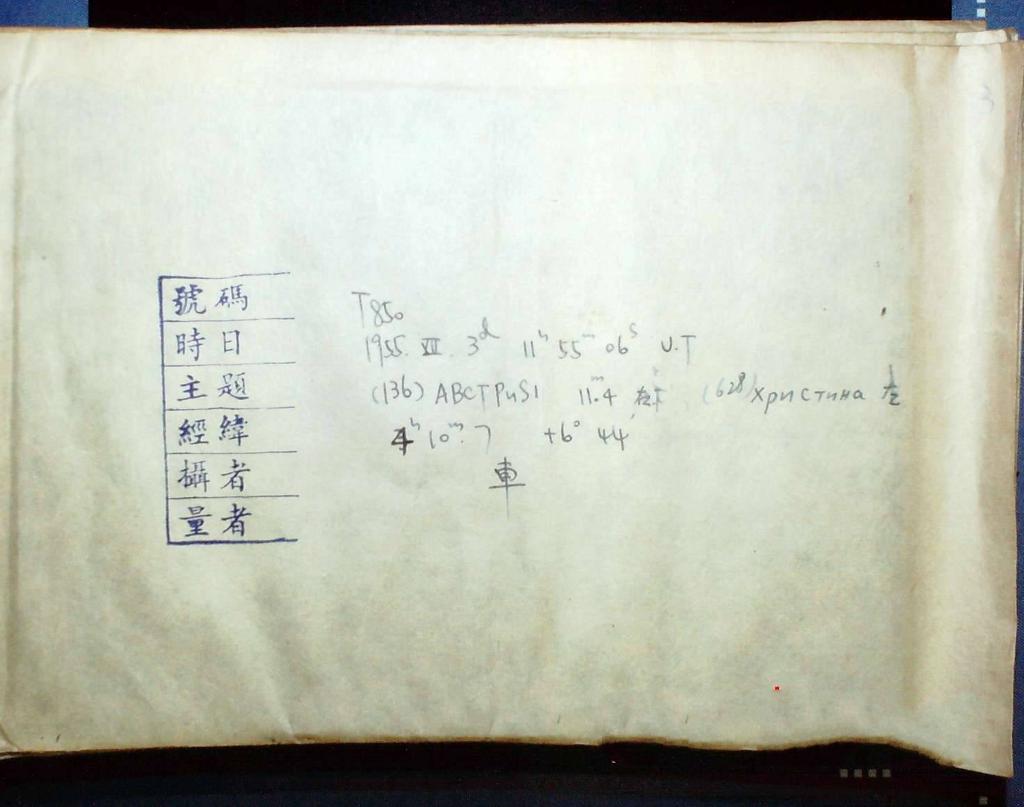 號碼 T850
時日 1955. XII. 3ᵈ 11ʰ 55ᵐ 06ˢ U.T
主題 (136) АВСТРИЯ 11ᵐ.4 (628) Христина 左
經緯 4ʰ 10ᵐ.7 +6° 44
攝者 車
量者
3